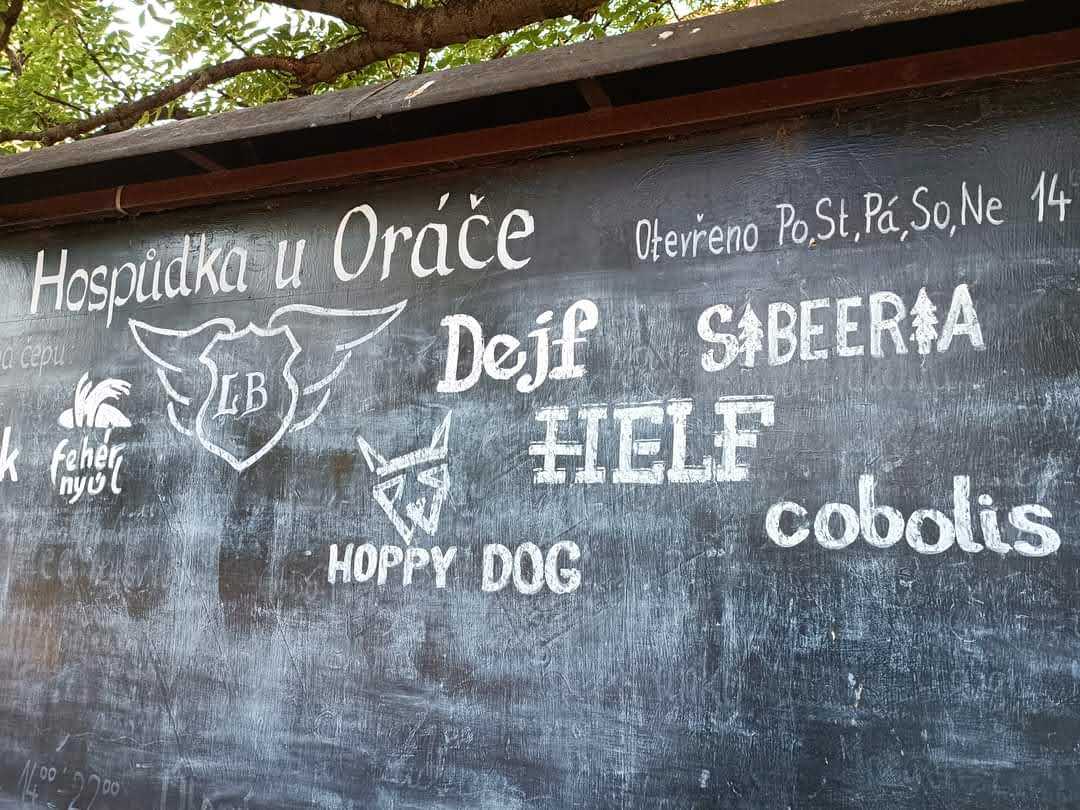 Hospůdka u Oráče
Otevřeno Po,St,Pá,So,Ne 14
čepu:
LB
Dejf
SIBEERIA
k
fehér
nyúl
HELF
HOPPY DOG
cobolis
14⁰⁰-22⁰⁰